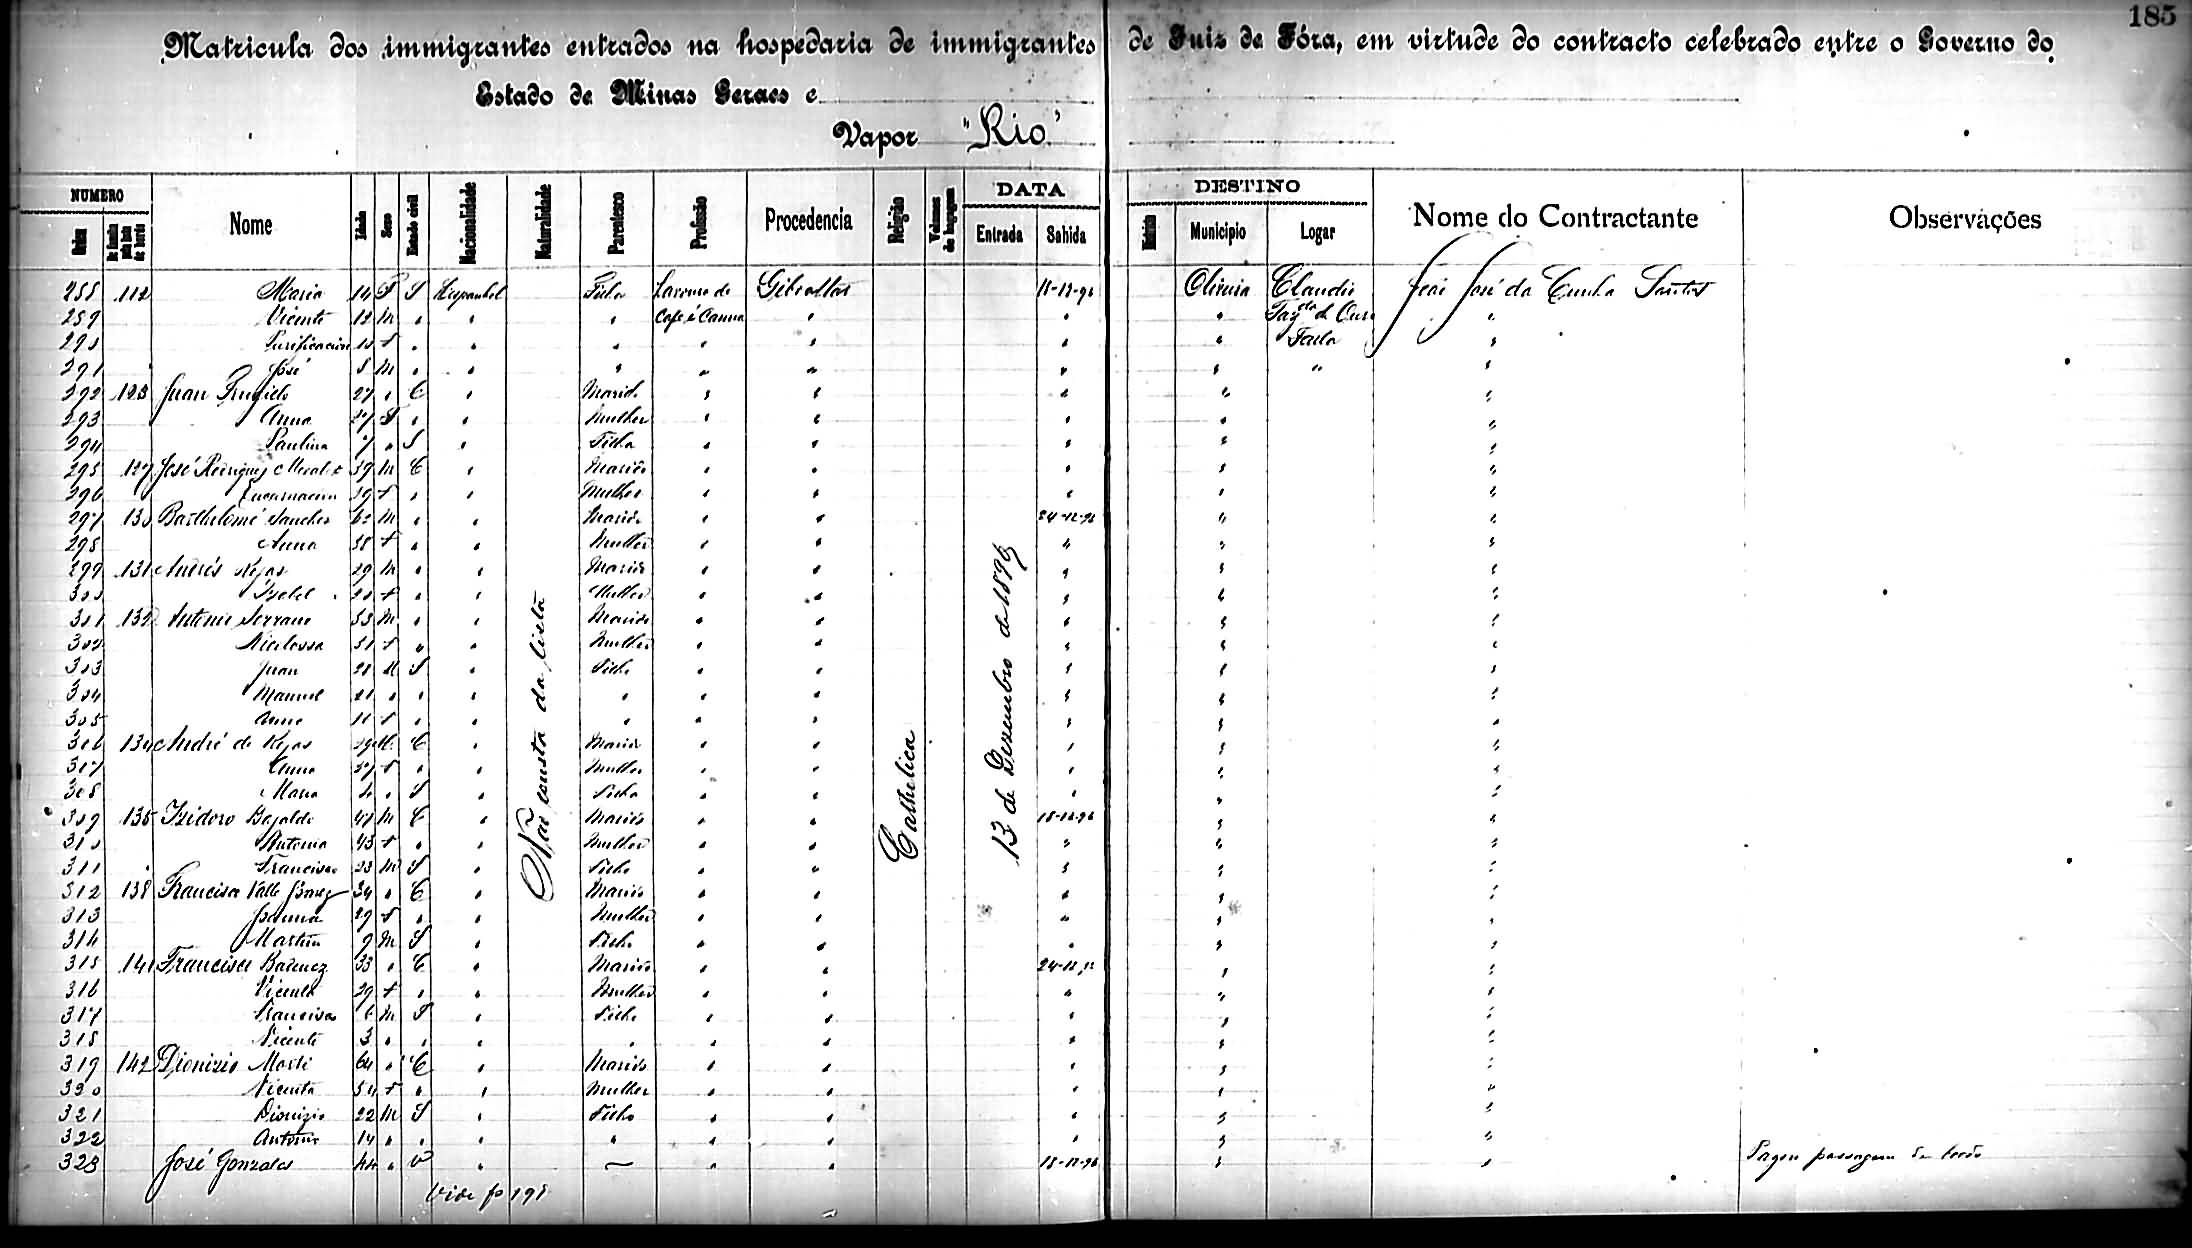 185
Matricula dos immigrantes entrados na hospedaria de immigrantes de Juiz de Fóra, em virtude do contracto celebrado entre o Governo do
Estado de Minas Geraes e
Vapor "Rio"
NUMERO Nome Idade Sexo Estado civil Nacionalidade Naturalidade Parentesco Profissão Procedencia Religião Volumes de bagagem DATA DESTINO Nome do Contractante Observações
Ordem de familia pela lista de bordo Entrada Sahida Municipio Logar
288 112 Maria 14 F S Hespanhol Filha Lavoura de Gibraltar 18-12-96 Oliveira Claudio João José da Cunha Santos
289 Vicente 12 M " " " Café e Canna " " " "
290 Purificacion " " " " " " "
291 José 8 M " " " " " " " " "
292 123 Juan 27 " C " Marido " " " " "
293 Anna 27 F " " Mulher " " " " "
294 Paulina 7 " S " Filha " " " " "
295 127 José Rodriguez 39 M C " Marido " " " " "
296 Encarnacion 39 F " " Mulher " " " " "
297 130 Barthelomé Sanches M " " Marido " " 24-12-96 " "
298 Anna 38 F " " Mulher " " " " "
299 131 Andrés Rojas 29 M " " Marido " " " " "
300 Izabel F " " Mulher " " " " "
301 132 Antonio Serrano 53 M " " Marido " " " " "
302 51 F " " Mulher " " " " "
303 Juan M S " Filho " " " " "
304 Manuel 21 " " " " " " " " "
305 Anna 11 F " " " " " " " "
306 134 André de Rojas 29 M C " Marido " " " " "
307 Anna 27 F " " Mulher " " " " "
308 Maria 4 " S " Filha " " " " "
309 135 Izidoro 47 M C " Marido " " 18-12-96 " "
310 Antonia 43 F " " Mulher " " " " "
311 Francisco 23 M S " Filho " " " " "
312 138 Francisco Valle 34 " C " Marido " " " " "
313 Joanna 29 F " " Mulher " " " " "
314 Martin 9 M S " Filho " " " " "
315 141 Francisco 33 " C " Marido " " 24-12-96 " "
316 Vicenta 29 F " " Mulher " " " " "
317 Francisco 6 M S " Filho " " " " "
318 Vicente 3 " " " " " " " " "
319 142 Dionizio Marti 64 " C " Marido " " " " "
320 Vicenta 54 F " " Mulher " " " " "
321 Dionizio 22 M S " Filho " " " " "
322 Antonio 14 " " " " " " " " "
323 José Gonzales 44 " V " — " " 18-12-96 " " Pagou passagem de bordo
Não consta da lista
Catholica
13 de Dezembro de 1896
Vide fo 191